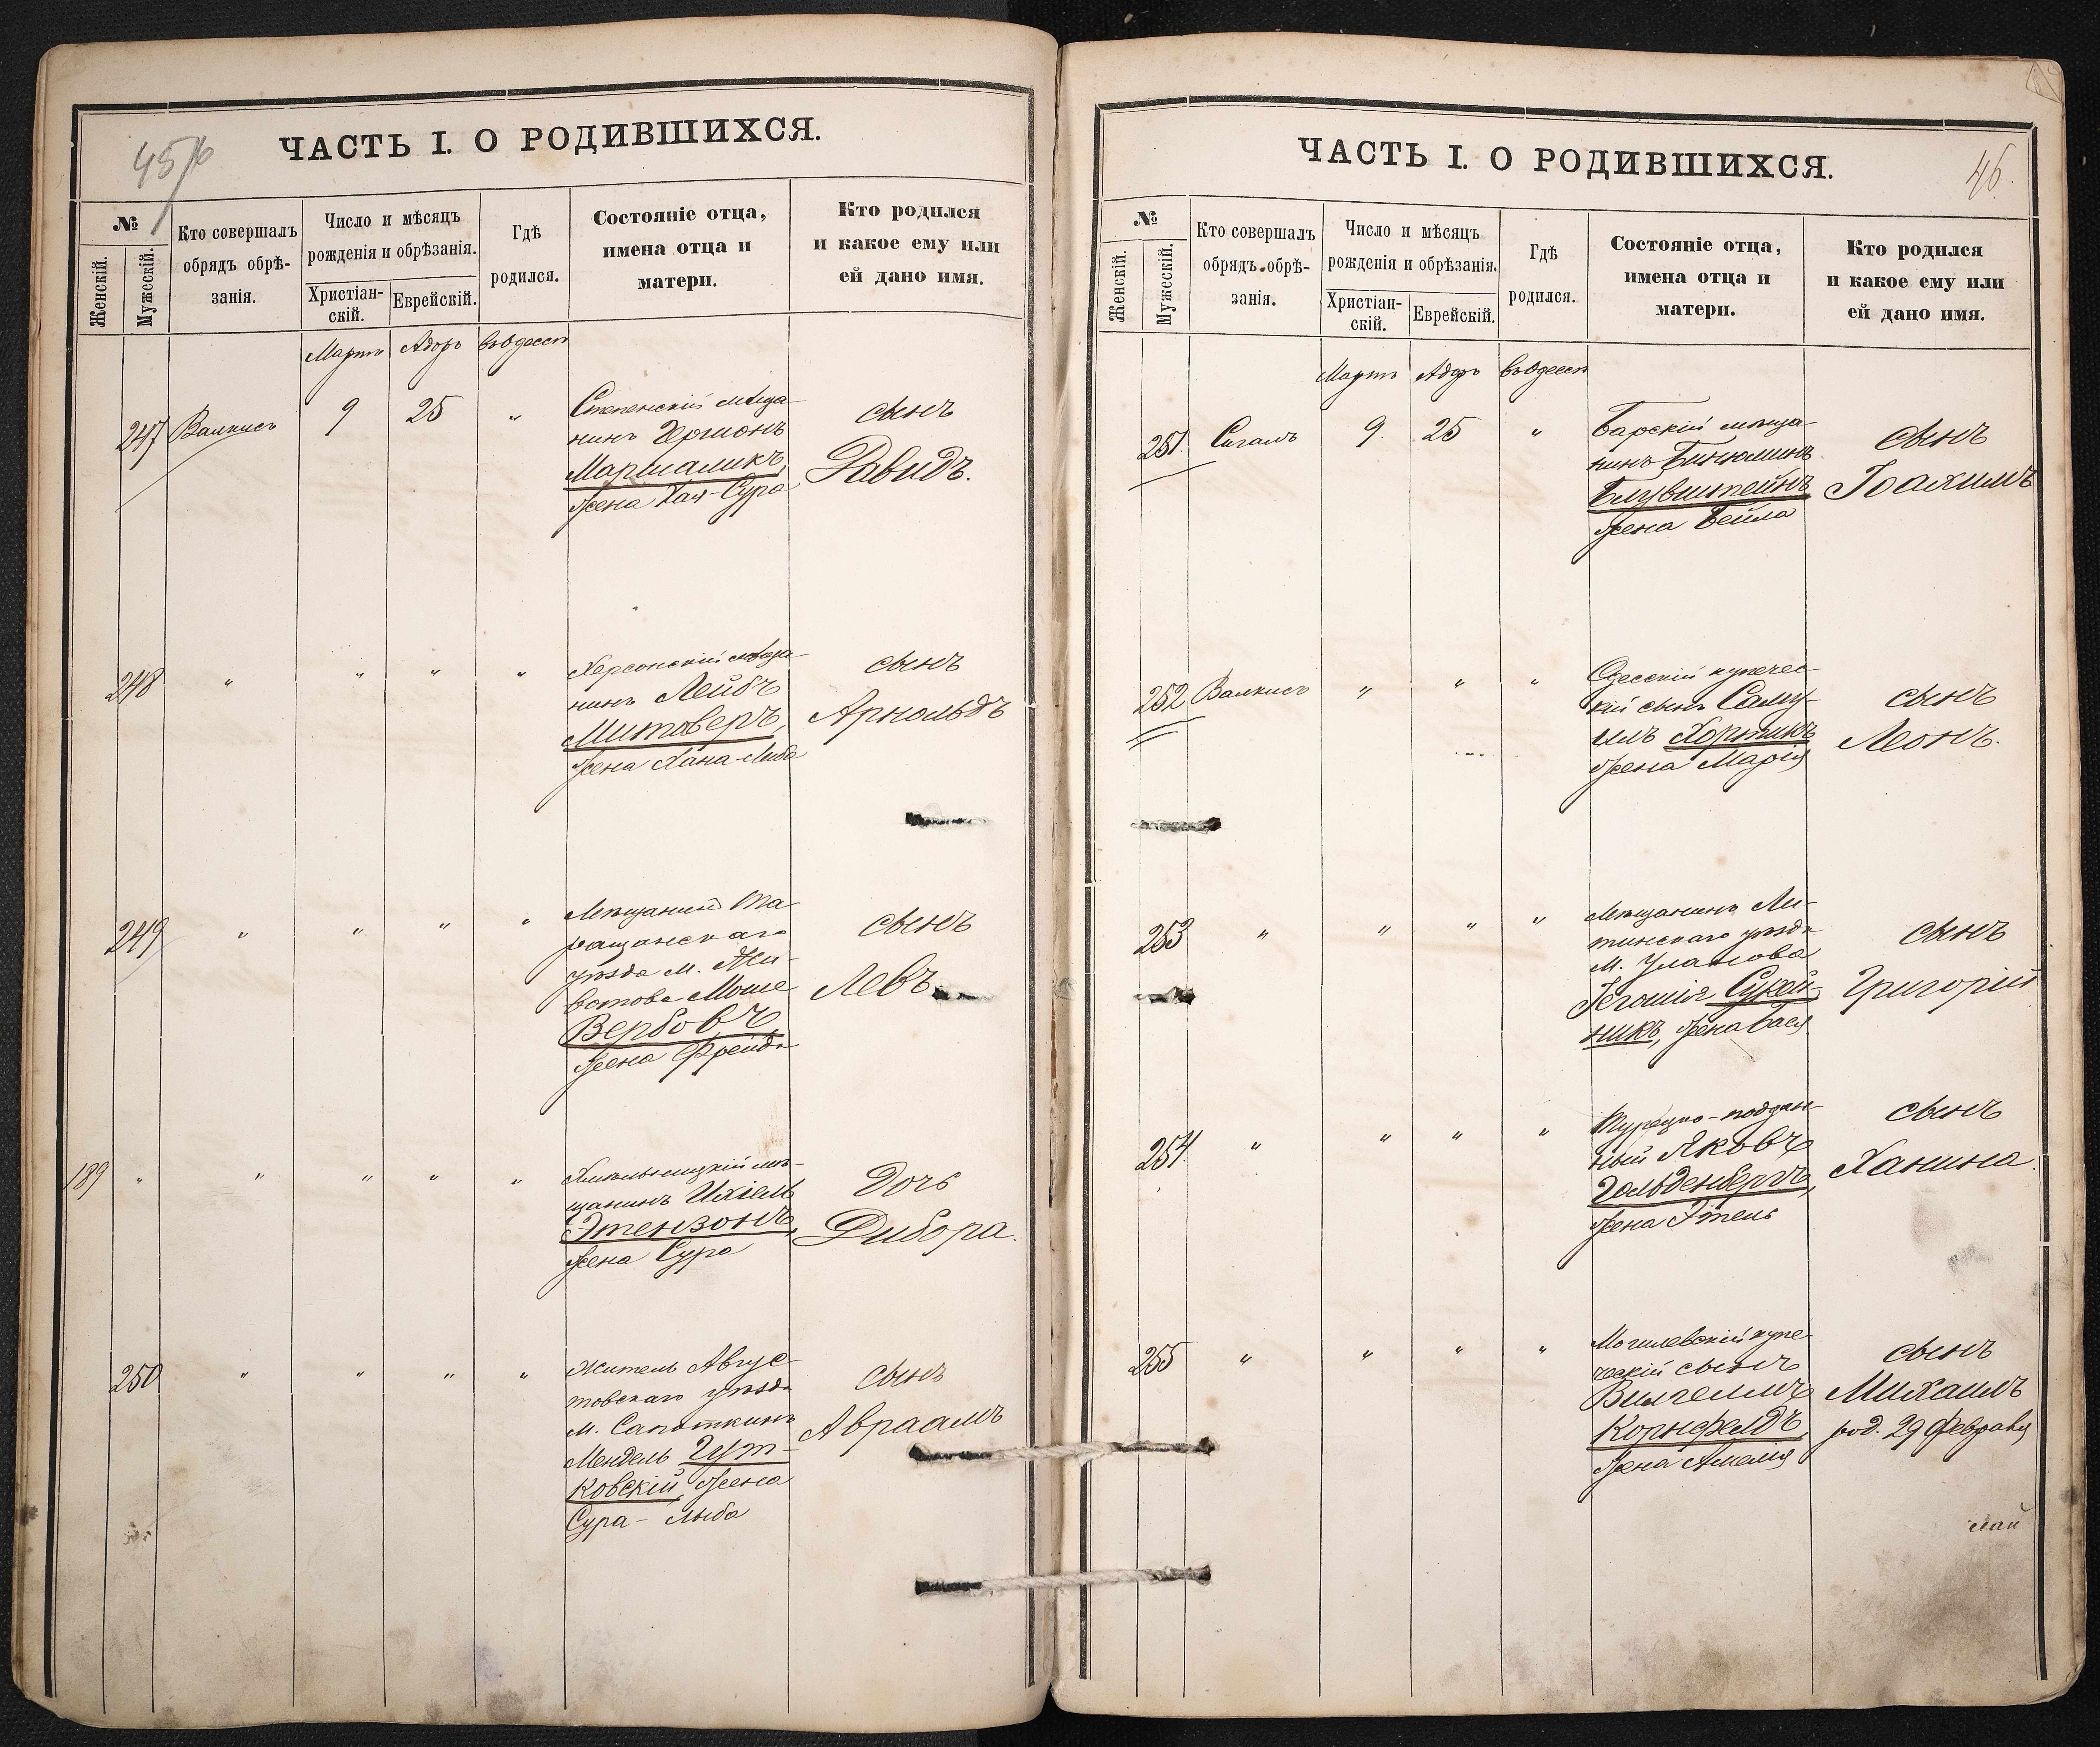 45/6
ЧАСТЬ I. О РОДИВШИХСЯ.
№
Женскій.
Мужескій.
Кто совершалъ
обрядъ обрѣ-
занія.
Число и мѣсяцъ
рожденія и обрѣзанія.
Христіан-
скій.
Еврейскій.
Гдѣ
родился.
Состояніе отца,
имена отца и
матери.
Кто родился
и какое ему или
ей дано имя.
Мартъ Адоръ въ Одессѣ
247 Валкисъ 9 25 "
Степенскій мѣща-
нинъ Гершонъ
Маршаликъ,
жена Хая-Сура
сынъ
Давидъ.
248 " " " "
Херсонскій мѣща-
нинъ Лейбъ
Митоверъ,
жена Хана-Люба
сынъ
Арнольдъ
249 " " " "
Мѣщанинъ Та-
ращанскаго
уѣзда м. Жи-
вотова Моше
Вербовъ,
жена Фрейда
сынъ
Левъ
189 " " " " "
Хмѣльницкій мѣ-
щанинъ Ихіель
Этензонъ,
жена Сура
Дочь
Дибора.
250 " " " "
Житель Авгус-
товскаго уѣзда
м. Сапоткинъ
Мендель Гут-
ковскій, жена
Сура- Люба
сынъ
Авраамъ
46.
ЧАСТЬ I. О РОДИВШИХСЯ.
№
Женскій.
Мужескій.
Кто совершалъ
обрядъ обрѣ-
занія.
Число и мѣсяцъ
рожденія и обрѣзанія.
Христіан-
скій.
Еврейскій.
Гдѣ
родился.
Состояніе отца,
имена отца и
матери.
Кто родился
и какое ему или
ей дано имя.
Мартъ Адоръ въ Одессѣ
251. Сигалъ 9. 25 "
Барскій мѣща-
нинъ Биньюминъ
Блувштейнъ
жена Бейла
сынъ
Іоахимъ
252 Валкисъ " " "
Одесскій купечес-
кій сынъ Саму-
илъ Хорникъ
жена Марія
сынъ
Леонъ.
253 " " " "
Мѣщанинъ Ли-
тинскаго уѣзда
м. Уланова
Іегошія Сукен-
никъ, жена Бася
сынъ
Григорій
254 " " " "
Турецко-поддан-
ный Яковъ
Гольденбергъ,
жена Этель
сынъ
Ханина.
255 " " " "
Могилевскій купе-
ческій сынъ
Вилгелмъ
Корнфелдъ,
жена Амалія
сынъ
Михаилъ
род. 29 февраля